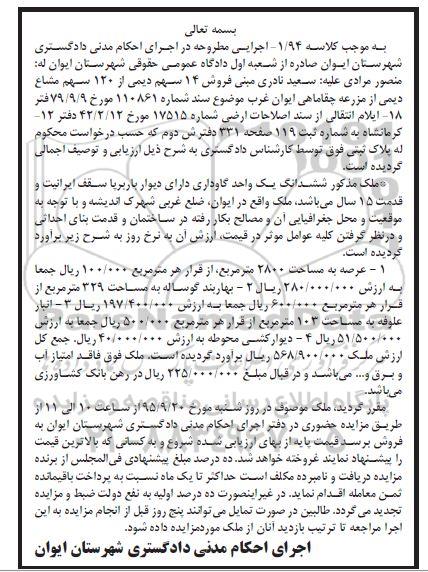 بسمه تعالی
به موجب کلاسه ۱/۹۴- اجرایی مطروحه در اجرای احکام مدنی دادگستری
شهرستان ایوان صادره از شعبه اول دادگاه عمومی حقوقی شهرستان ایوان له:
منصور مرادی علیه: سعید نادری مبنی فروش ۱۴ سهم دیمی از ۱۲۰ سهم مشاع
دیمی از مزرعه چقاماهی ایوان غرب موضوع سند شماره ۱۱۰۸۶۱ مورخ ۷۹/۹/۹ فتر
۱۸- ایلام انتقالی از سند اصلاحات ارضی شماره ۱۷۵۱۵ مورخ ۴۲/۲/۱۲ دفتر ۱۲-
کرمانشاه به شماره ثبت ۱۱۹ صفحه ۳۳۱ دفتر ش دوم که حسب درخواست محکوم
له پلاک ثبتی فوق توسط کارشناس دادگستری به شرح ذیل ارزیابی و توصیف اجمالی
گردیده است.
*ملک مذکور ششدانگ یک واحد گاوداری دارای دیوار باربر با سقف ایرانیت و
قدمت ۱۵ سال می‌باشد، ملک واقع در ایوان، ضلع غربی شهرک اندیشه و با توجه به
موقعیت و محل جغرافیایی آن و مصالح بکار رفته در ساختمان و قدمت بنای احداثی
و درنظر گرفتن کلیه عوامل موثر در قیمت، ارزش آن به نرخ روز به شرح زیر برآورد
گردیده است.
۱ - عرصه به مساحت ۲۸۰۰ مترمربع، از قرار هر مترمربع ۱۰۰/۰۰۰ ریال جمعا
به ارزش ۲۸۰/۰۰۰/۰۰۰ ریال ۲ - بهاربند گوساله به مساحت ۳۲۹ مترمربع از
قرار هر مترمربع ۶۰۰/۰۰۰ ریال جمعا به ارزش ۱۹۷/۴۰۰/۰۰۰ ریال ۳ - انبار
علوفه به مساحت ۱۰۳ مترمربع از قرار هر مترمربع ۵۰۰/۰۰۰ ریال جمعا به ارزش
۵۱/۵۰۰/۰۰۰ ریال ۴ - دیوارکشی محوطه به ارزش ۴۰/۰۰۰/۰۰۰ ریال. جمع کل
ارزش ملک ۵۶۸/۹۰۰/۰۰۰ ریال برآورد گردیده است. ملک فوق فاقد امتیاز آب
و برق و... می‌باشد و در قبال مبلغ ۲۲۵/۰۰۰/۰۰۰ ریال در رهن بانک کشاورزی
می‌باشد.
مقرر گردید، ملک موصوف در روز شنبه مورخ ۹۵/۹/۲۰ از ساعت ۱۰ الی ۱۱ از
طریق مزایده حضوری در دفتر اجرای احکام مدنی دادگستری شهرستان ایوان به
فروش برسد قیمت پایه از بهای ارزیابی شده شروع و به کسانی که بالاترین قیمت
را پیشنهاد نمایند فروخته خواهد شد. ده درصد مبلغ پیشنهادی فی‌المجلس از برنده
مزایده دریافت و نامبرده مکلف است حداکثر تا یک ماه نسبت به پرداخت باقیمانده
ثمن معامله اقدام نماید. در غیراینصورت ده درصد اولیه به نفع دولت ضبط و مزایده
تجدید می‌گردد. طالبین در صورت تمایل می‌توانند پنج روز قبل از انجام مزایده به این
اجرا مراجعه تا ترتیب بازدید آنان از ملک موردمزایده داده شود.
اجرای احکام مدنی دادگستری شهرستان ایوان